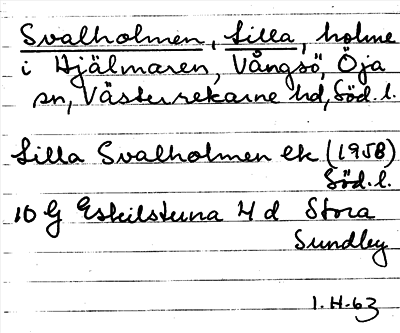 Svalholmen, Lilla, holme
i Hjälmaren, Vångsö, Öja
sn, Västerrekarne hd, Söd. l.
Lilla Svalholmen ek (1958)
Söd. l.
10 G Eskilstuna 4 d Stora
Sundby
1.H-63